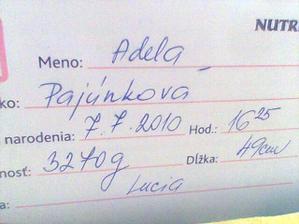 NUTR
Meno: Adela
ko: Pajúnkova
narodenia: 7.7.2010 Hod.: 16 25
nosť: 3270g Dĺžka: 49cm
Lucia
a: